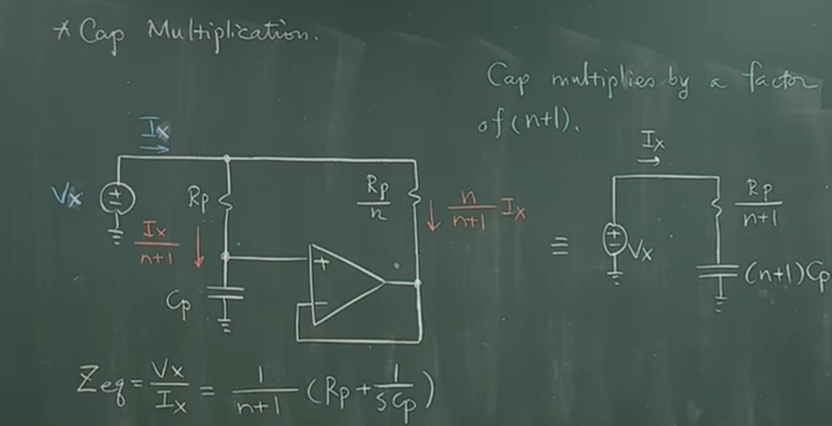 * Cap Multiplication.
Cap multiplies by a factor
of (n+1).
Ix
Vx
Rp
Rp/n
n/(n+1) Ix
Ix/(n+1)
Cp
+
-
≡
Ix
Vx
Rp/(n+1)
(n+1)Cp
Zeq = Vx/Ix = 1/(n+1) (Rp + 1/sCp)